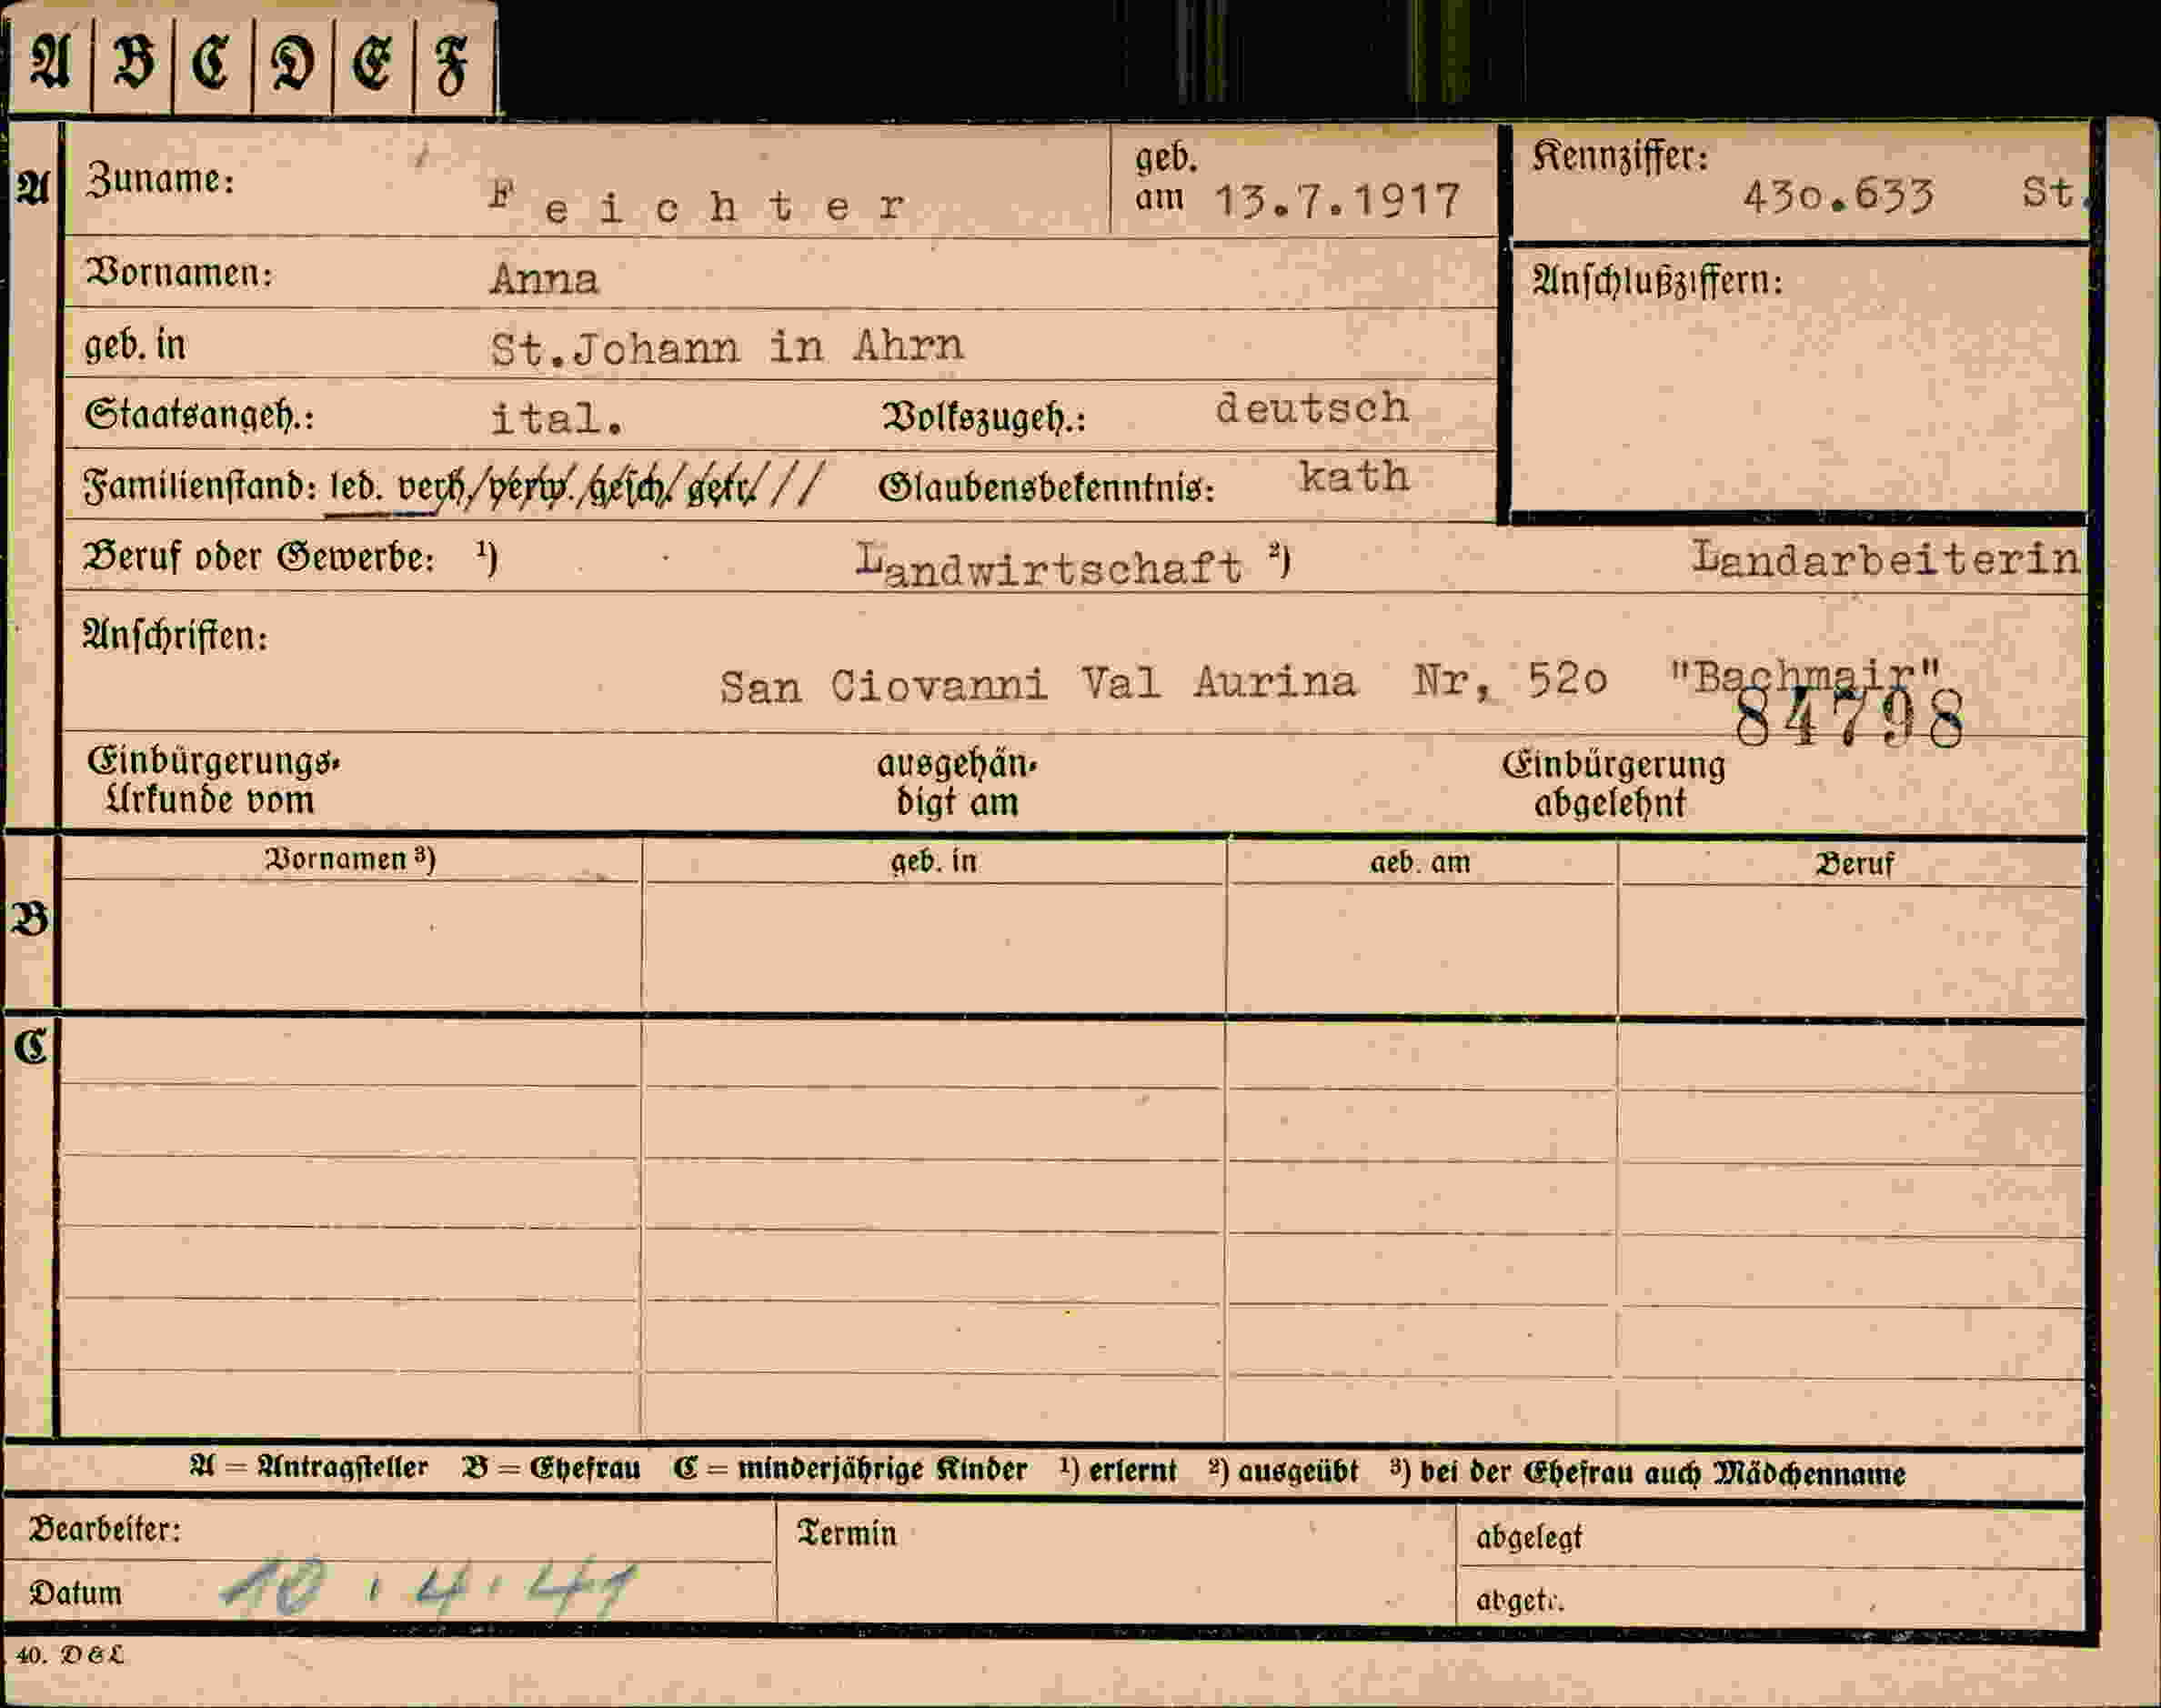 A B C D E F
A Zuname: Feichter geb. am 13.7.1917 Kennziffer: 430.633 St.
Vornamen: Anna Anschlußziffern:
geb. in St.Johann in Ahrn
Staatsangeh.: ital. Volkszugeh.: deutsch
Familienstand: led. verh./verw./gesch./getr./// Glaubensbekenntnis: kath
Beruf oder Gewerbe: ¹) Landwirtschaft ²) Landarbeiterin
Anschriften:
San Ciovanni Val Aurina Nr, 52o "Bachmair"
84798
Einbürgerungs- ausgehän- Einbürgerung
Urkunde vom digt am abgelehnt
Vornamen ³) geb. in geb. am Beruf
B
C
A = Antragsteller B = Ehefrau C = minderjährige Kinder ¹) erlernt ²) ausgeübt ³) bei der Ehefrau auch Mädchenname
Bearbeiter: Termin abgelegt
Datum 10.4.41 abgetr.
40. D & L